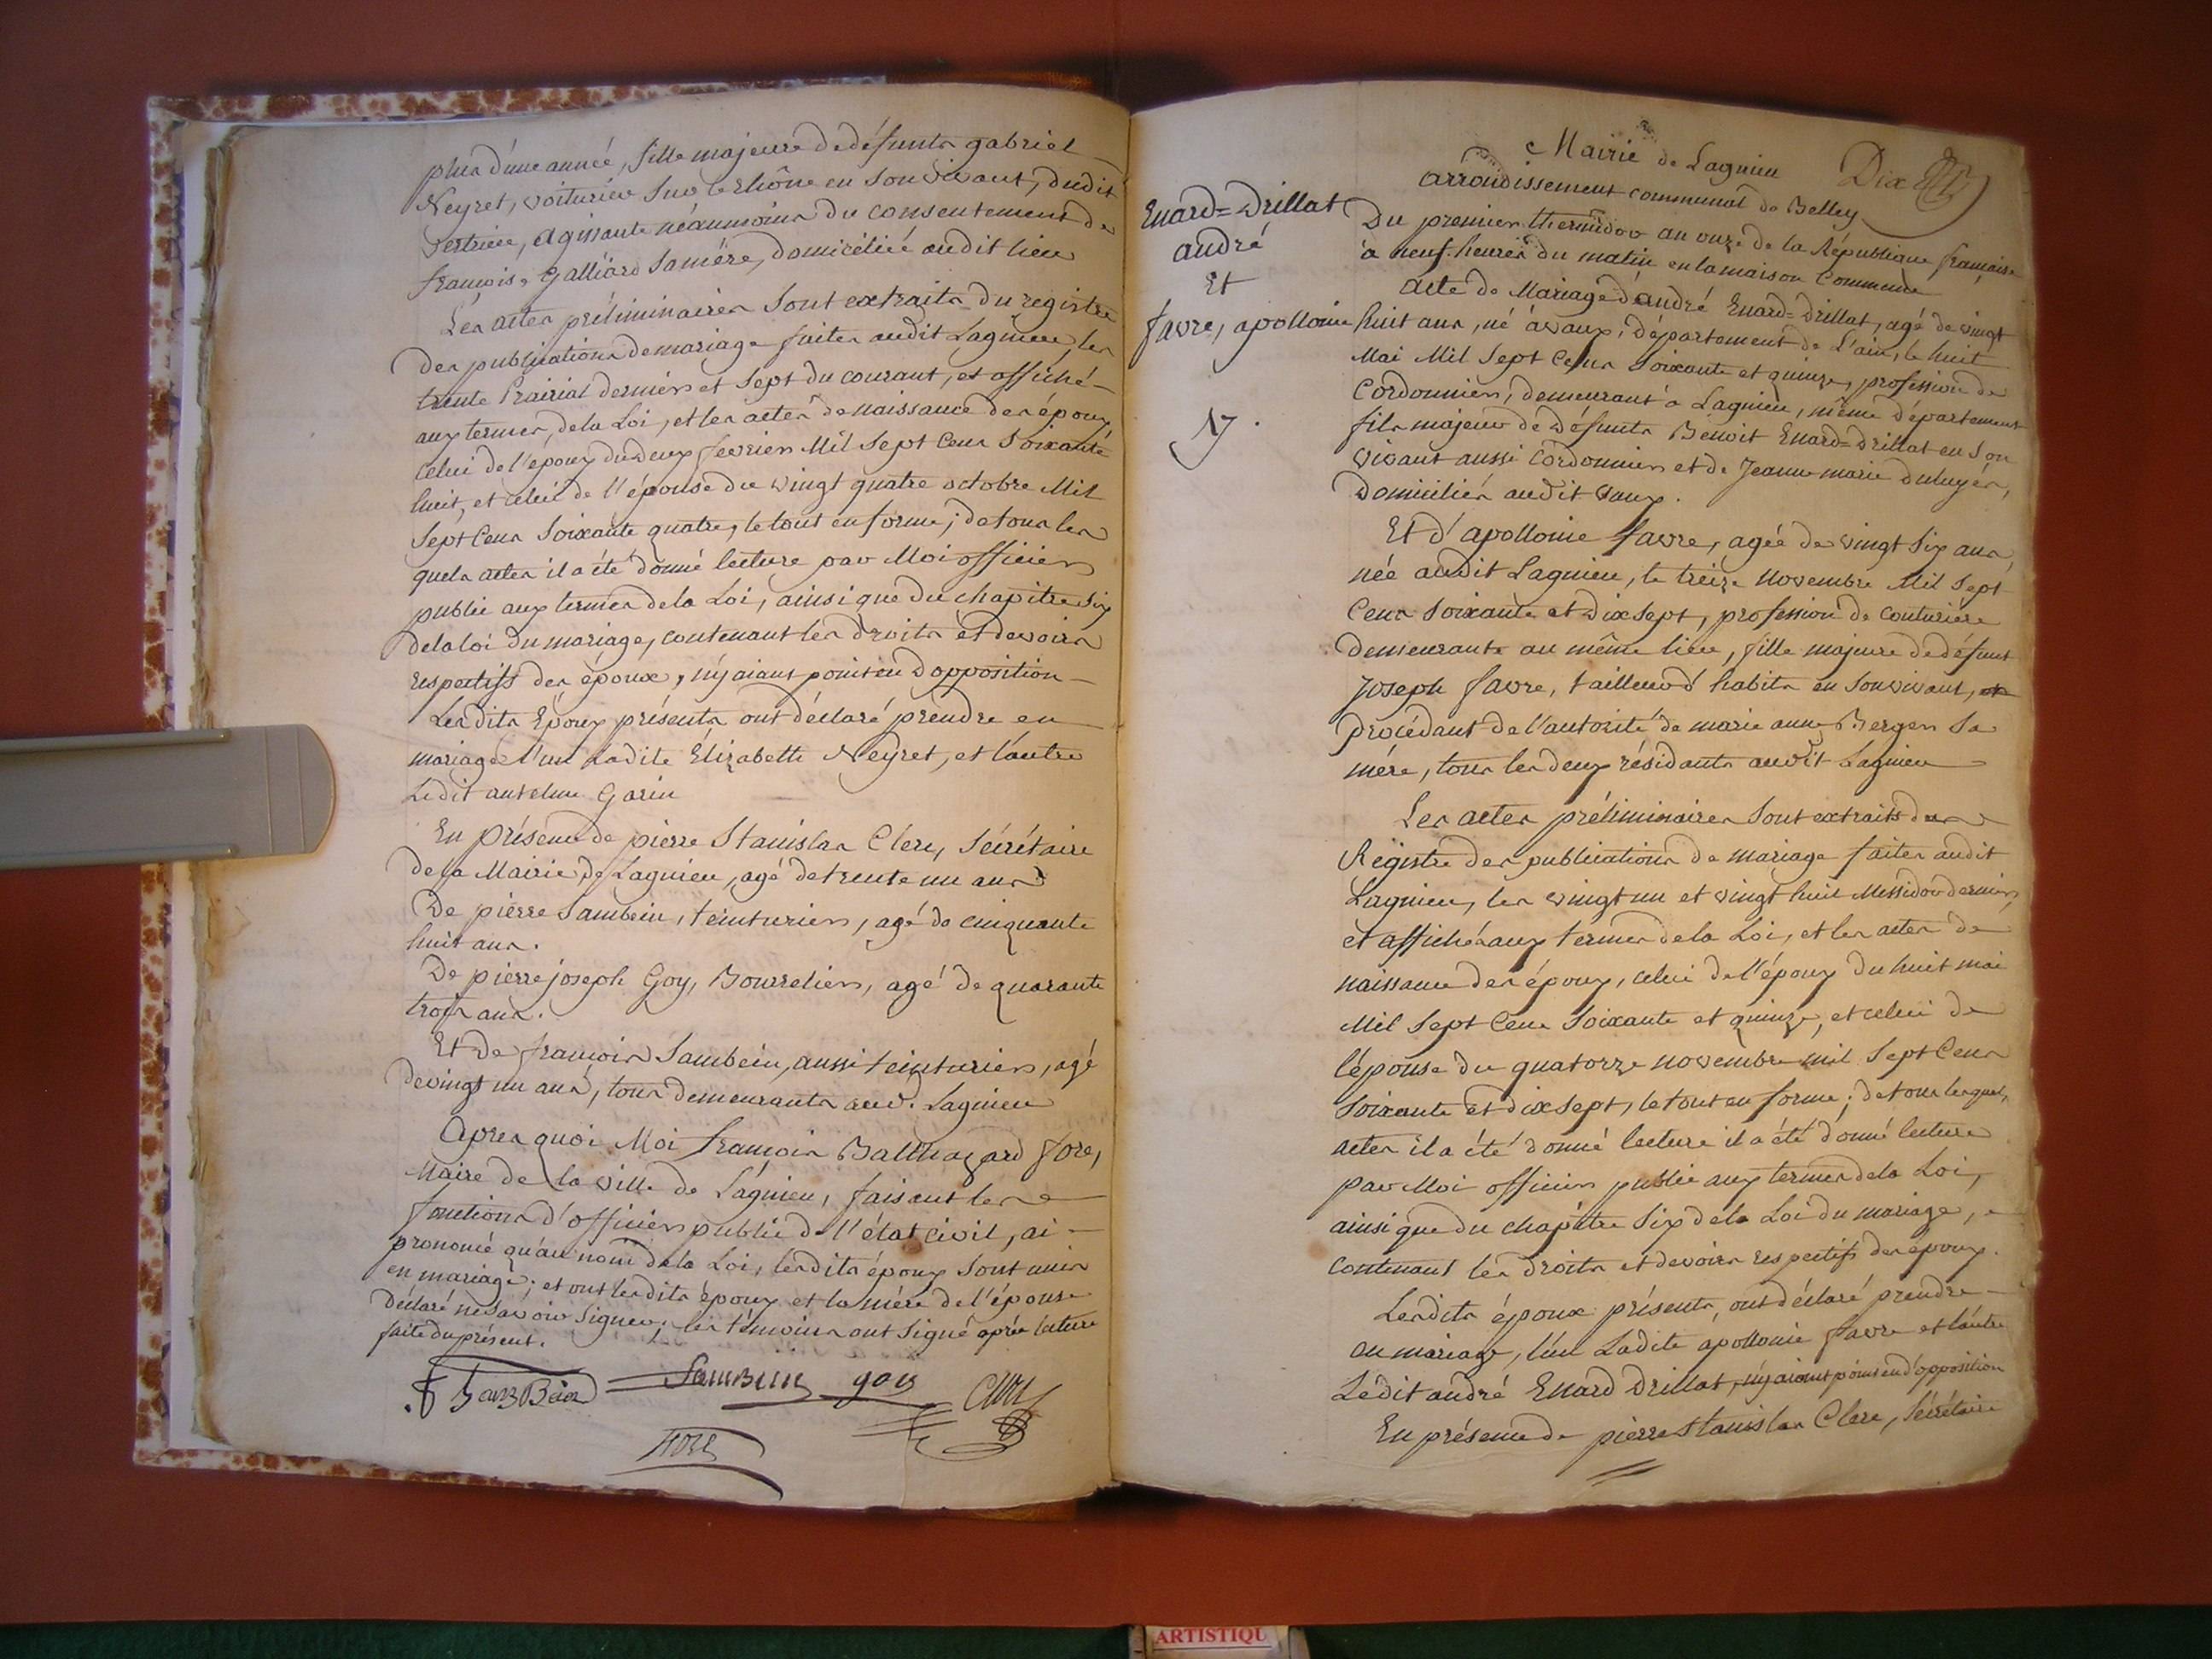 plus d'une année, fille majeure de défunts gabriel
Neyret, voiturier sur le Rhône en son vivant, dudit
vertrieu, agissante néanmoins du consentement de
françoise Galliard sa mére, domiciliée audit lieu
Les actes préliminaires sont extraits du registre
des publications de mariage faites audit Lagnieu, les
trente Prairial dernier et sept du courant, et affiché
aux termes de la Loi, et les actes de naissance des époux
celui de l'epoux du deux fevrier Mil sept Cens soixante
huit, et celui de l'épouse du vingt quatre octobre Mil
sept Cens soixante quatre, le tout en forme; de tous les
quels actes il a été donné lecture par Moi officier
public aux termes de la Loi, ainsi que du chapitre six
de la loi du mariage, contenant les droits et devoirs
respectifs des époux, n'y aiant point eu d'opposition
Lesdits Epoux présents ont déclaré prendre en
mariage l'un Ladite Elizabeth Neyret, et l'autre
Ledit anthelme Garin
En présence de pierre Stanislas Clerc, sécrétaire
de la Mairie de Lagnieu, agé de trente un ans
De pierre Sambein, teinturier, agé de cinquante
huit ans.
De pierre joseph Goy, Bourrelier, agé de quarante
trois ans.
Et de françois Sambein, aussi teinturier, agé
de vingt un ans, tous demeurants aud. Lagnieu
Après quoi Moi françois Balthazard fore,
Maire de la ville de Lagnieu, faisant les
fonctions d'officier public de l'état civil, ai
prononcé qu'au nom de la Loi, lesdits époux sont unis
en mariage; et ont lesdits époux et la mére de l'épouse
déclaré ne savoir signer; les témoins ont signé après lecture
faite du présent.
f SamBein Sambein goy Clerc
fore
Mairie de Lagnieu Dix
arrondissement communal de Belley
Enard=Drillat
andré
Et
favre, apollonie
N.
Du premier thermidor an onze de la République française
à neuf heures du matin en la maison Commune
acte de Mariage d'andré Enard=Drillat, agé de vingt
huit ans, né à vaux, département de L'ain, le huit
Mai Mil Sept Cens soixante et quinze, profession de
Cordonnier, demeurant à Lagnieu, même département
fils majeur de défunts Benoit Enard=Drillat en son
vivant aussi cordonnier et de Jeanne marie
domiciliés audit vaux.
Et d'apollonie favre, agée de vingt six ans,
née audit Lagnieu, le treize novembre Mil Sept
Cens soixante et dix sept, profession de couturiére
demeurante au même lieu, fille majeure de défunt
Joseph favre, tailleur d'habits en son vivant, et
procédant de l'autorité de marie anne Berger sa
mére, tous les deux résidants audit Lagnieu
Les actes préliminaires sont extraits du
Régistre des publications de mariage faites audit
Lagnieu, les vingt un et vingt huit Messidor dernier,
et affichés aux termes de la Loi, et les actes de
naissance des époux, celui de l'époux du huit mai
Mil Sept Cens soixante et quinze, et celui de
l'épouse du quatorze novembre mil sept Cens
soixante et dix sept, le tout en forme; de tous lesquels
actes il a été donné lecture il a été donné lecture
par Moi officier public aux termes de la Loi,
ainsi que du chapitre six de la Loi du mariage,
contenant les droits et devoirs respectifs des époux.
Lesdits époux présents, ont déclaré prendre
en mariage, l'un Ladite apollonie favre et l'autre
Ledit andré Enard Drillat, n'y aiant point eu d'opposition
En présence de pierre Stanislas Clerc, sécrétaire
ARTISTIQU